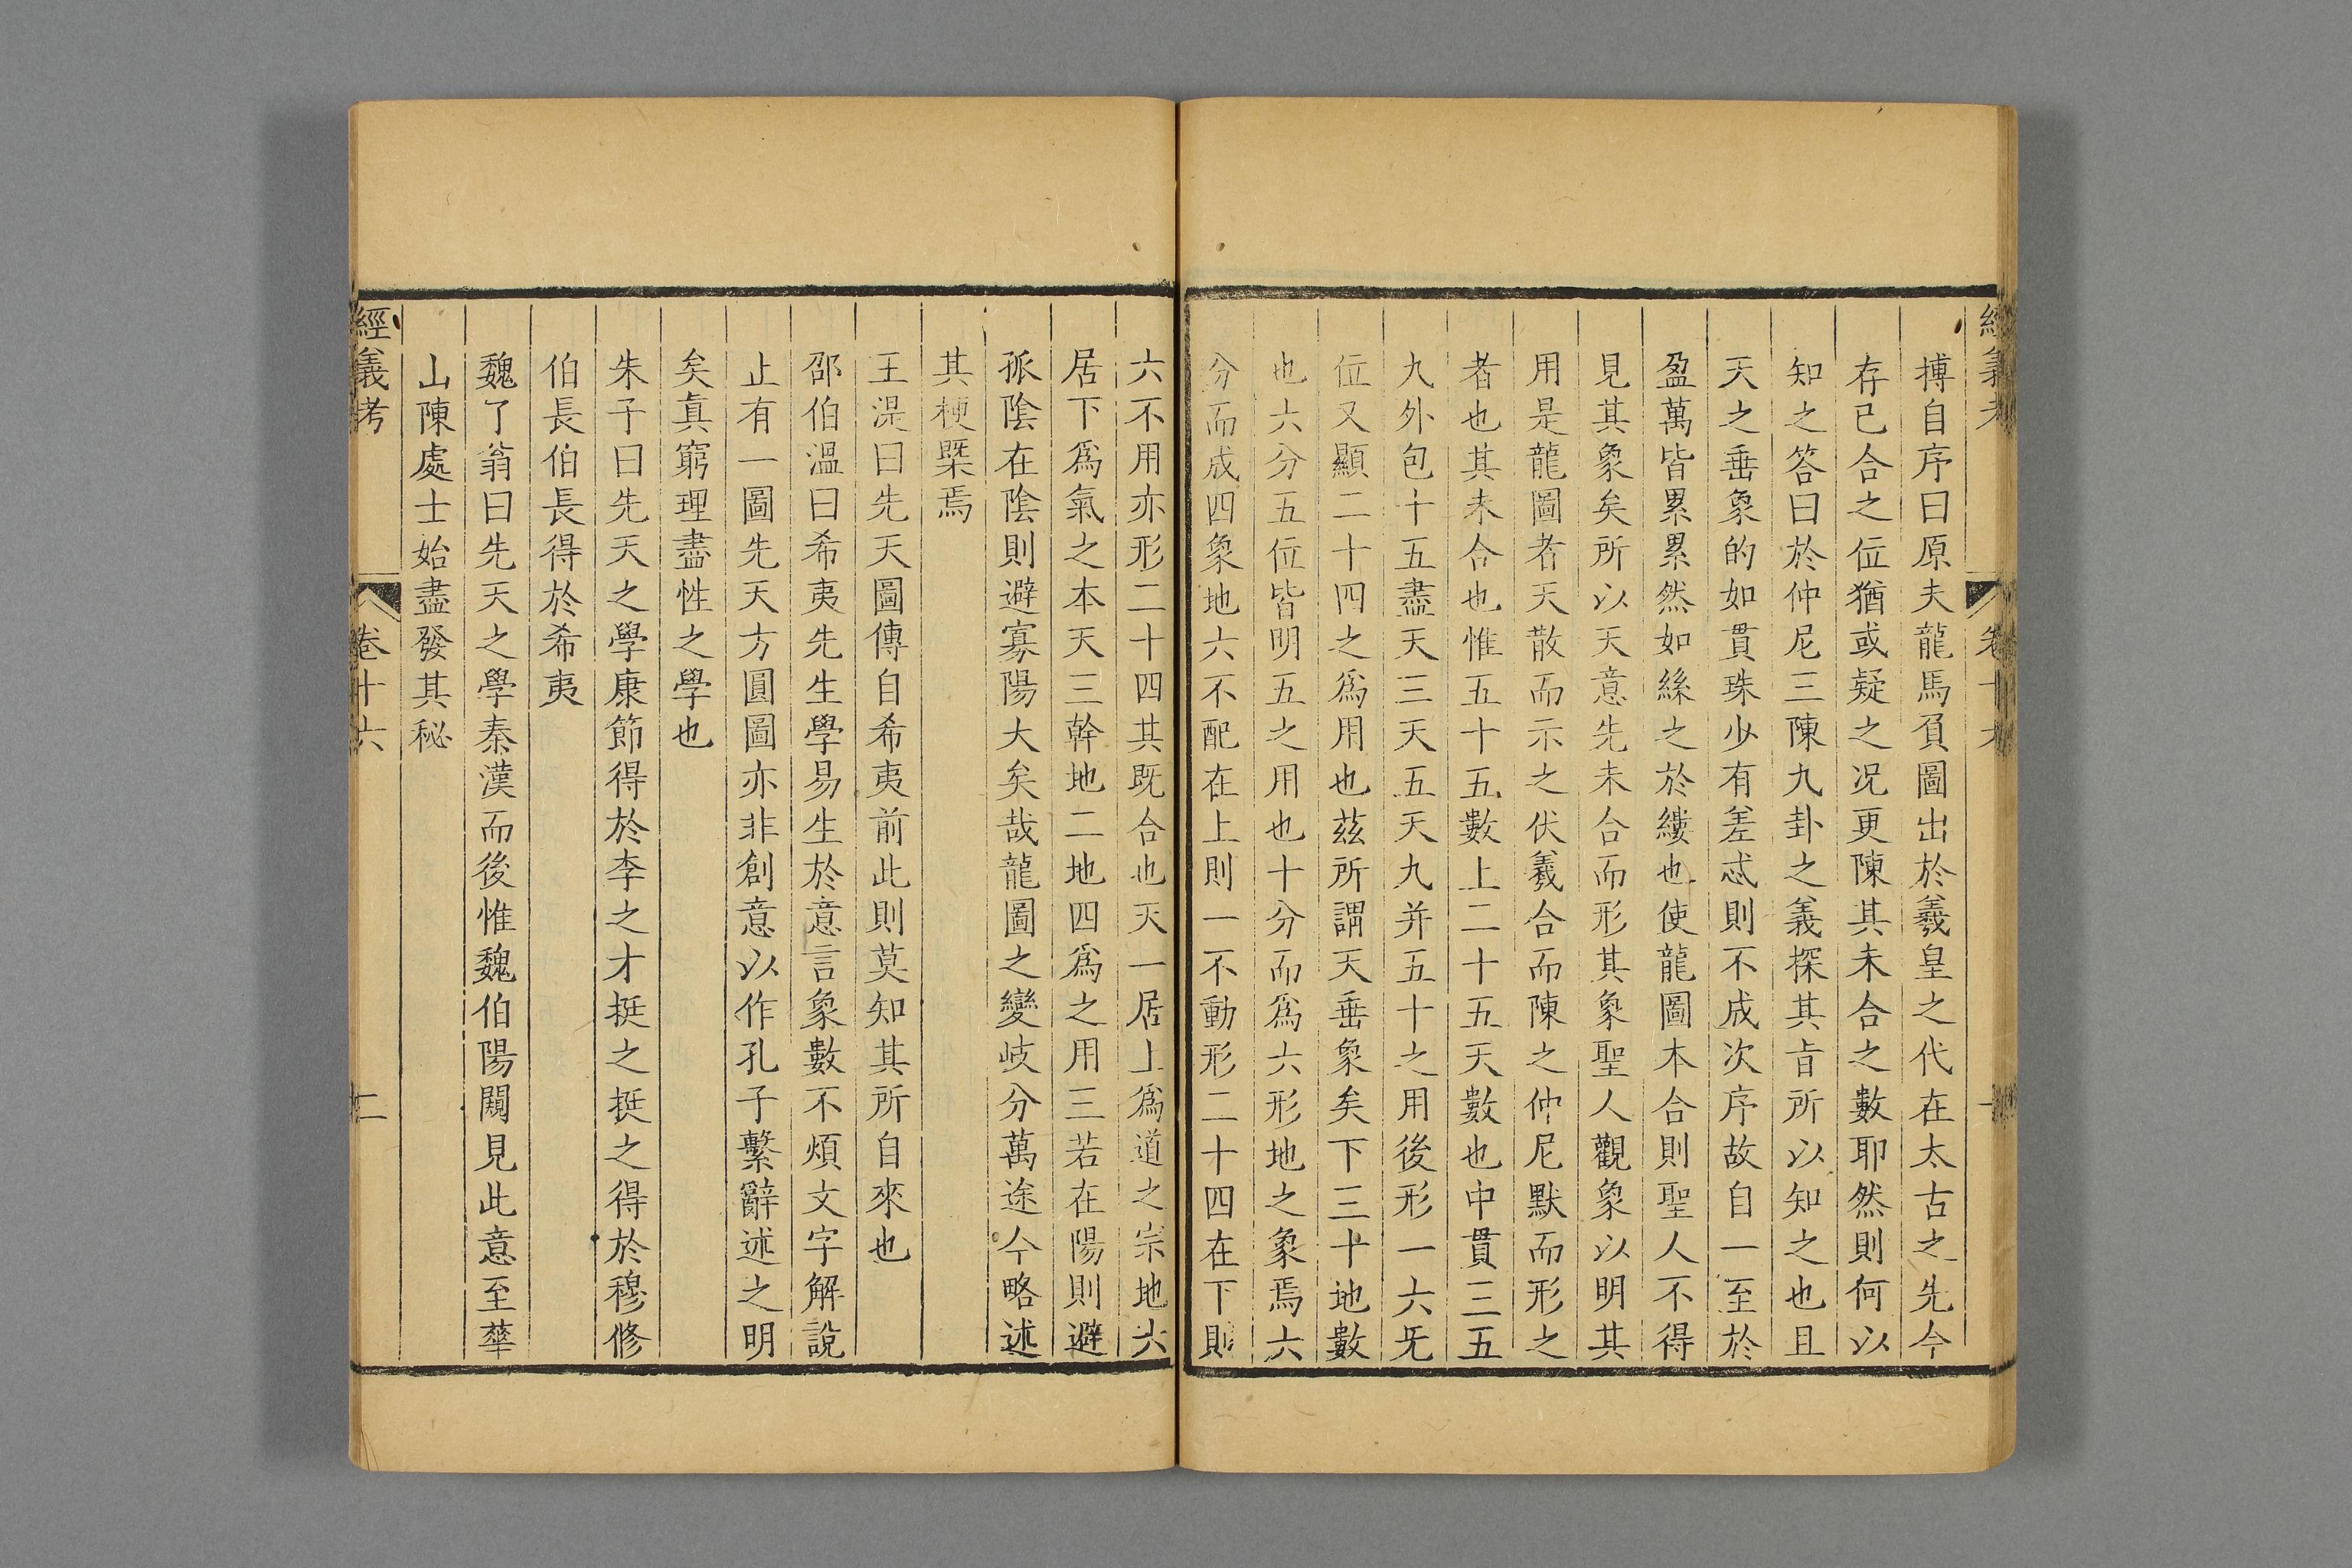 經義考 卷十六 一
摶自序曰原夫龍馬負圖出於羲皇之代在太古之先今
存已合之位猶或疑之况更陳其未合之數耶然則何以
知之答曰於仲尼三陳九卦之義探其旨所以知之也且
天之垂象的如貫珠少有差忒則不成次序故自一至於
盈萬皆累累然如絲之於縷也使龍圖本合則聖人不得
見其象矣所以天意先未合而形其象聖人觀象以明其
用是龍圖者天散而示之伏羲合而陳之仲尼默而形之
者也其未合也惟五十五數上二十五天數也中貫三五
九外包十五盡天三天五天九并五十之用後形一六旡
位又顯二十四之爲用也茲所謂天垂象矣下三十地數
也六分五位皆明五之用也十分而爲六形地之象焉六
分而成四象地六不配在上則一不動形二十四在下則
六不用亦形二十四其既合也天一居上爲道之宗地六
居下爲氣之本天三幹地二地四爲之用三若在陽則避
孤陰在陰則避寡陽大矣哉龍圖之變岐分萬途今略述
其梗槩焉
王湜曰先天圖傳自希夷前此則莫知其所自來也
邵伯溫曰希夷先生學易生於意言象數不煩文字解說
止有一圖先天方圓圖亦非創意以作孔子繫辭述之明
矣眞窮理盡性之學也
朱子曰先天之學康節得於李之才挺之挺之得於穆修
伯長伯長得於希夷
魏了翁曰先天之學秦漢而後惟魏伯陽闚見此意至華
山陳處士始盡發其秘
經義考 卷十六 二